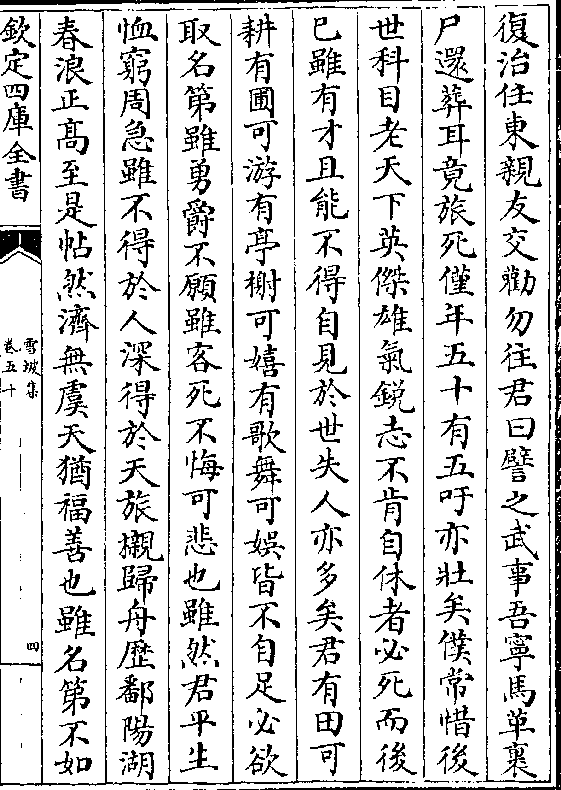 復治任東親友交勸勿往君曰譬之武事吾寧馬革裹
尸還葬耳竟旅死僅年五十有五吁亦壯矣僕常惜後
世科目老天下英傑雄氣鋭志不肯自休者必死而後
已雖有才且能不得自見於世失人亦多矣君有田可
耕有圃可游有亭榭可嬉有歌舞可娛皆不自足必欲
取名第雖勇爵不願雖客死不悔可悲也雖然君平生
恤窮周急雖不得於人深得於天旅櫬歸舟歷鄱陽湖
春浪正髙至是帖然濟無虞天猶福善也雖名第不如
欽定四庫全書
雪坡集
卷五十
四